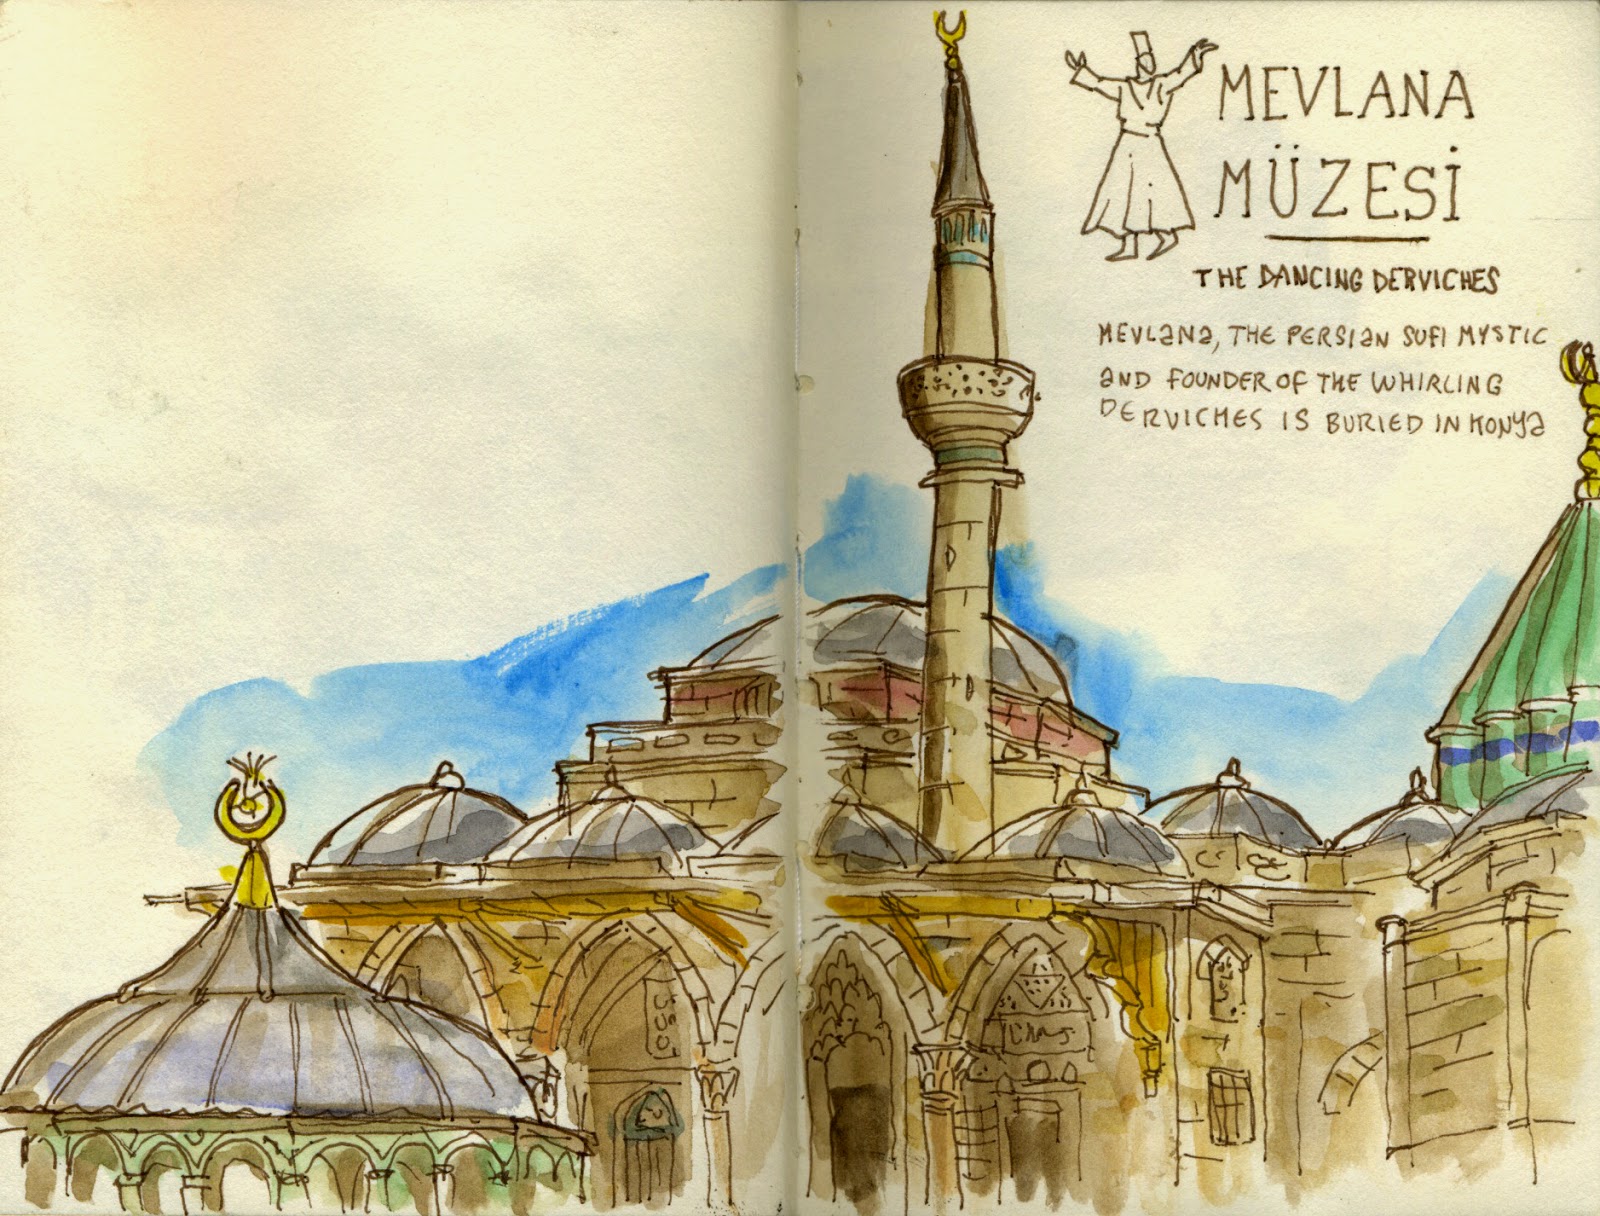 MEVLANA
MÜZESİ
THE DANCING DERVICHES
MEVLANA, THE PERSIAN SUFI MYSTIC
AND FOUNDER OF THE WHIRLING
DERVICHES IS BURIED IN KONYA